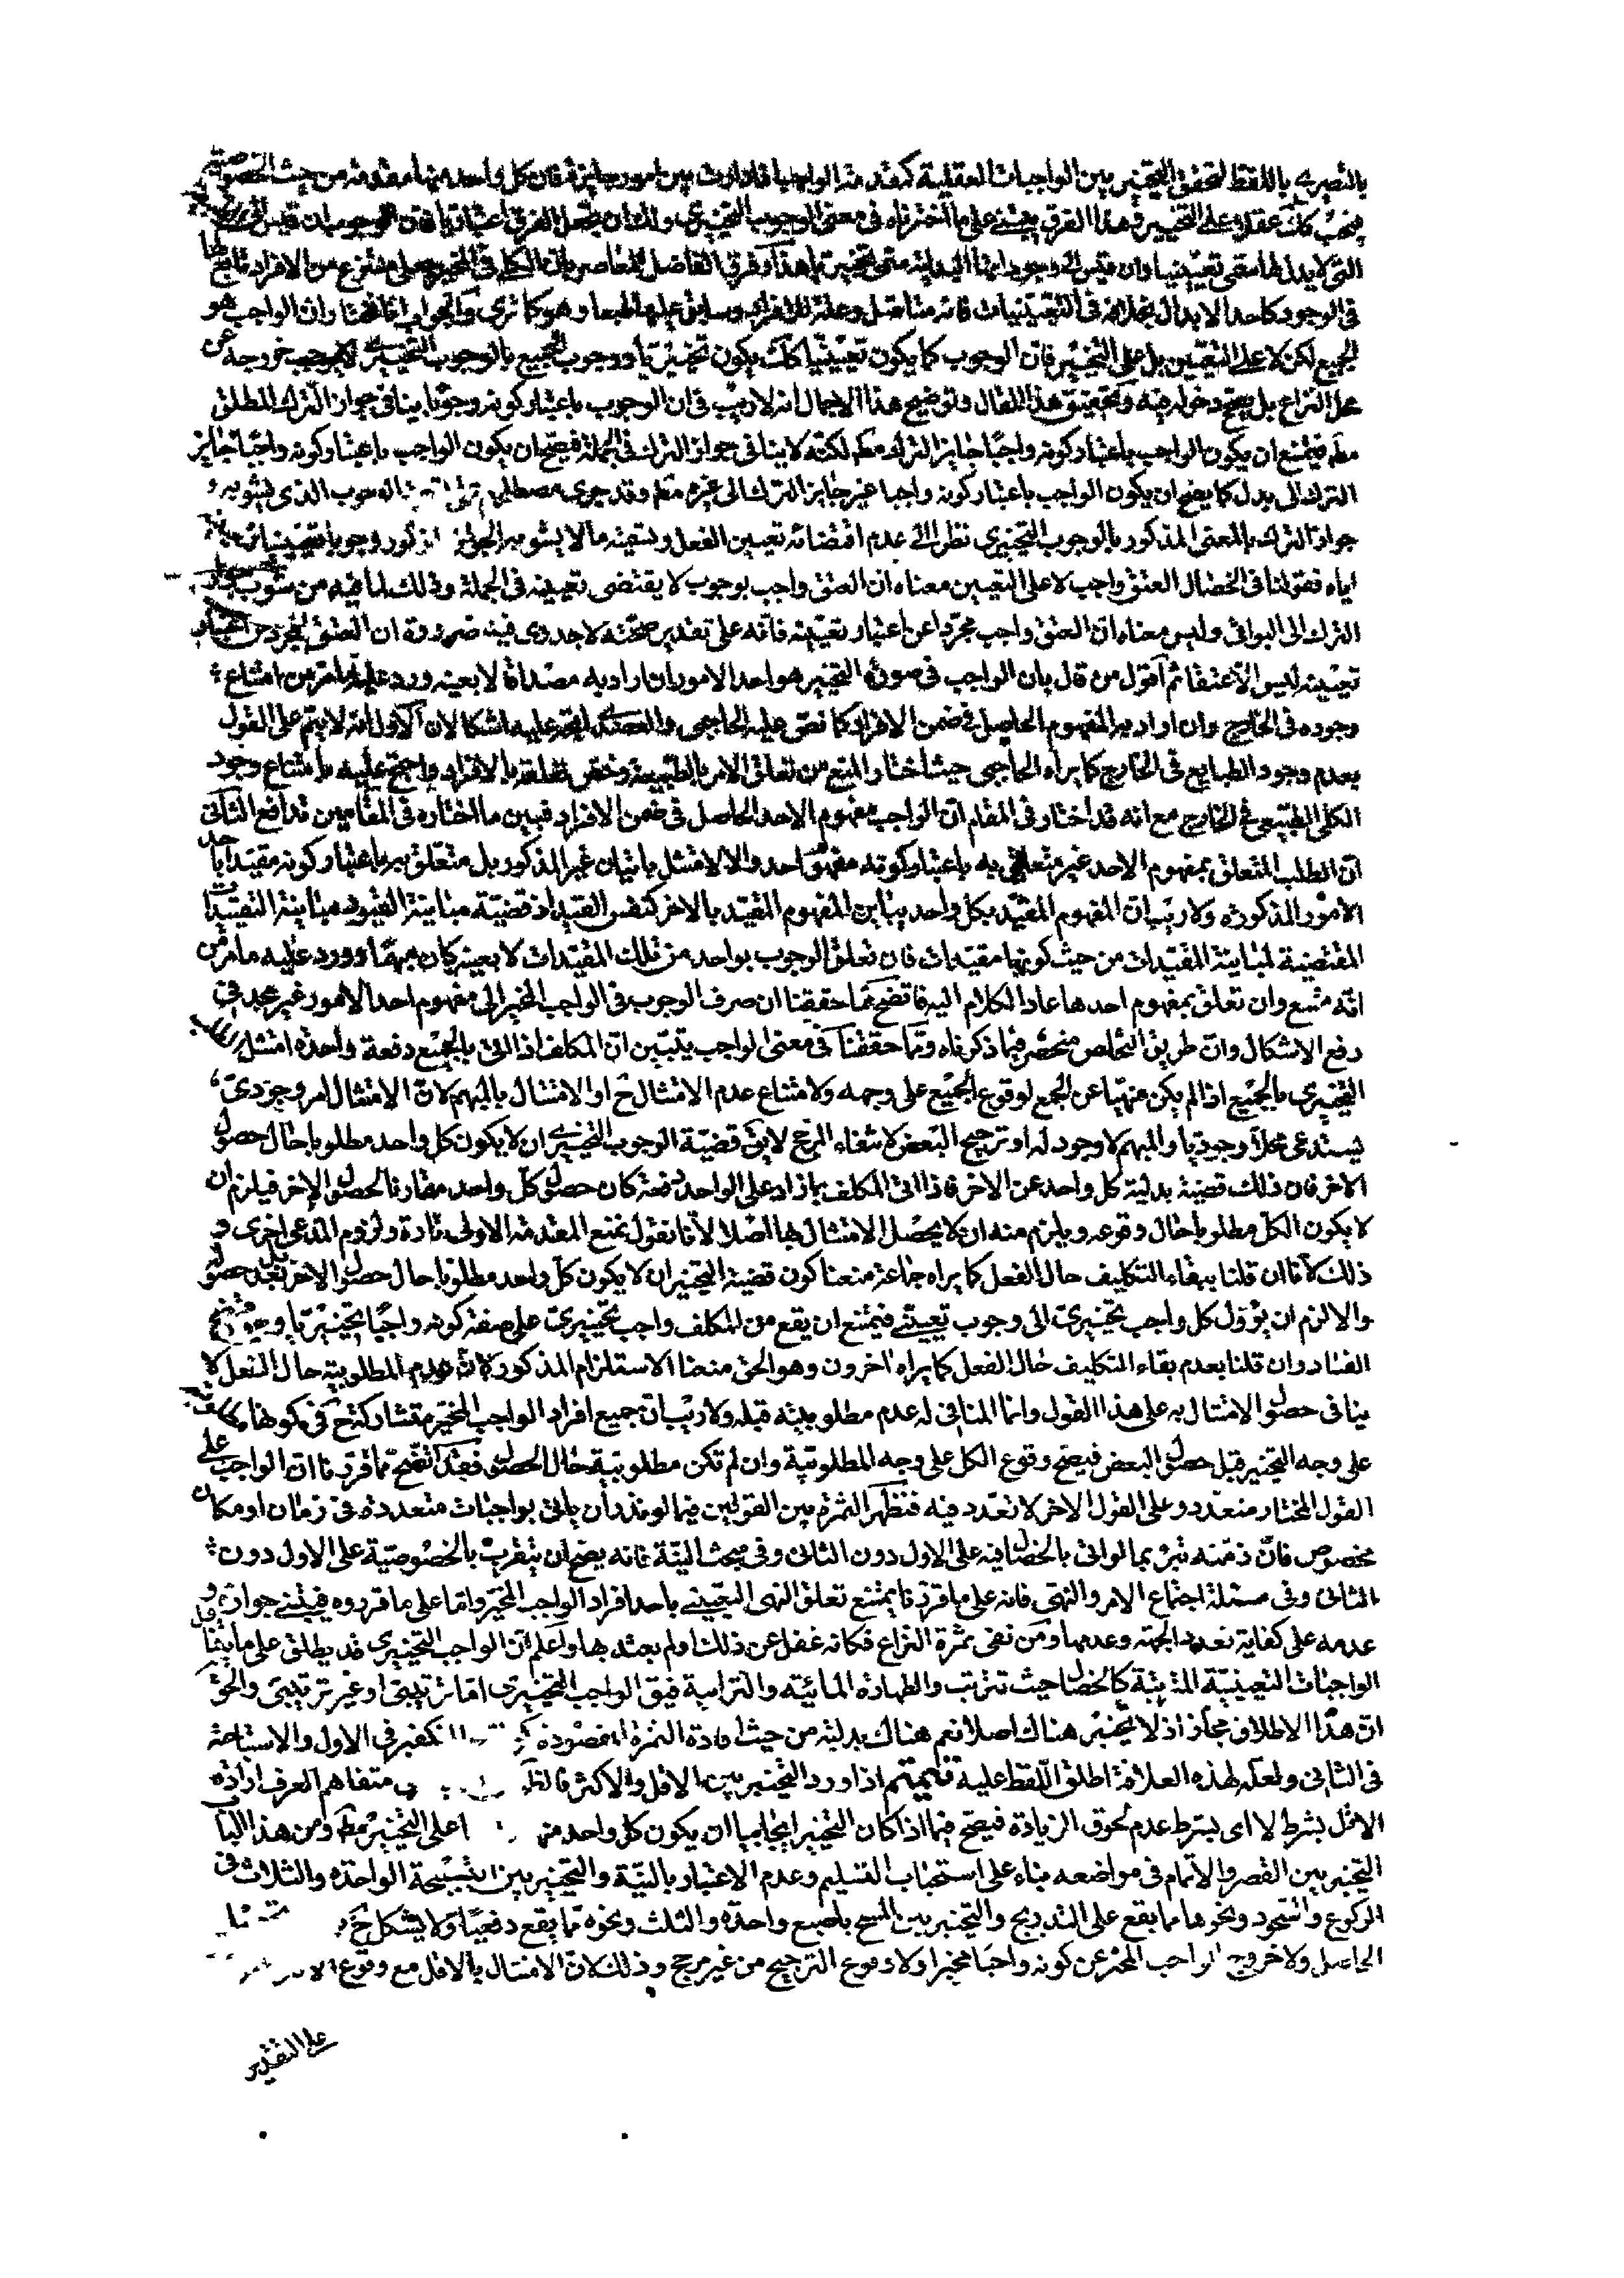 بالتصريح باللفظ لتحقق التخيير بين الواجبات العقلية كمقدمة الواجب اذا دارت بين امور جايزة فان كل واحد منها مقدمة من حيث الخصوصية
فيجب كك عقلا على التخيير وهذا الفرق يبتنى على ما اخترناه فى معنى الوجوب التخييرى ولك ان تجعل الفرق اعتباريا فان الوجوب ان قيس الى
التى لا بدل لها سمى تعيينيا وان قيس الى وجود ابدالية سمى تخييريا هذا وفرق الفاضل المعاصر بان الكلى فى المخير منتزع من الافراد تابع لها
فى الوجود كاحد الابدال بخلافه فى التعيينيات فانه متاصل وعلة للافراد وسابق عليها طبعا وهو كما ترى والجواب انا نختار ان الواجب هو
الجميع لكن لا على التعيين بل على التخيير فان الوجوب كما يكون تعيينيا كك يكون تخييريا ووجوب الجميع بالوجوب التخييرى لا يوجب خروجه عن
محل النزاع بل يصح دخوله فيه وتحقيق هذا المقال وتوضيح هذا الاجمال انه لا ريب فى ان الوجوب باعتبار كونه وجوبا ينافى جواز الترك المطلق
مطلقا فيمتنع ان يكون الواجب باعتبار كونه واجبا جايز الترك مطم لكنه لا ينافى جواز الترك فى الجملة فيصح ان يكون الواجب باعتبار كونه واجبا جايز
الترك الى بدل كما يصح ان يكون الواجب باعتبار كونه واجبا غير جايز الترك الى غيره مطم وقد جرى مصطلحهم الوجوب الذى يشوبه
جواز الترك بالمعنى المذكور بالوجوب التخييرى نظرا الى عدم اقتضائه تعيين الفعل وتسمية ما لا يشوبه الجواز المذكور وجوبا تعيينيا
اياه فقولنا فى الخصال العتق واجب لا على التعيين معناه ان العتق واجب بوجوب لا يقتضى تعيينه فى الجملة وذلك لما فيه من شوب جواز
الترك الى البواقى وليس معناه ان العتق واجب مجردا عن اعتبار تعيينه فانه على تقدير صحته لا جدوى فيه ضرورة ان العتق المجرد عن اعتبار
تعيينه ليس الا عتقا ثم اقول من قال بان الواجب فى صورة التخيير هو احد الامور ان اراد به مصداقه لا بعينه ورد عليه ما مر من امتناع
وجوده فى الخارج وان اراد به المفهوم الحاصل فى ضمن الافراد كما نص عليه الحاجبى والعضدى اتجه عليه اشكالان الاول انه لا يتم على القول
بعدم وجود الطبايع فى الخارج كما يراه الحاجبى حيث اختار المنع من تعلق الامر بالطبيعة وخص تعلقه بالافراد واحتج عليه بامتناع وجود
الكلى الطبيعى فى الخارج مع انه قد اختار فى المقام ان الواجب مفهوم الاحد الحاصل فى ضمن الافراد فبين ما اختاره فى المقامين تدافع الثانى
ان الطلب المتعلق بمفهوم الاحد غير متعلق به باعتبار كونه مفهوم احد والا لامتثل باتيان غير المذكور بل متعلق به باعتبار كونه مقيدا باحد
الامور المذكورة ولا ريب ان المفهوم المقيد بكل واحد يباين المفهوم المقيد بالاخر كنفس القيد اذ قضية مباينة القيود مباينة التقييدات
المقتضية لمباينة المقيدات من حيث كونها مقيدات فان تعلق الوجوب بواحد من تلك المقيدات لا بعينه كان مبهما وورد عليه ما مر من
انه ممتنع وان تعلق بمفهوم احدها عاد الكلام اليه فاتضح مما حققنا ان صرف الوجوب فى الواجب المخير الى مفهوم احد الامور غير مجد فى
رفع الاشكال وان طريق التخلص منحصر فيما ذكرناه ومما حققنا فى معنى الواجب يتبين ان المكلف اذا اتى بالجميع دفعة واحدة امتثل الطلب
التخييرى بالجميع اذا لم يكن منهيا عن الجمع لوقوع الجميع على وجهه ولامتناع عدم الامتثال ح او الامتثال بالمبهم لان الامتثال امر وجودى
يستدعى محلا وجوديا والمبهم لا وجود له او ترجيح البعض لانتفاء المرجح لا يق قضية الوجوب التخييرى ان لا يكون كل واحد مطلوبا حال حصول
الاخر فان ذلك قضية بدلية كل واحد عن الاخر فاذا اتى المكلف بما زاد على الواحد دفعة كان حصول كل واحد مقارنا لحصول الاخر فيلزم ان
لا يكون الكل مطلوبا حال وقوعه ويلزم منه ان لا يحصل الامتثال بها اصلا لانا نقول نمنع المقدمة الاولى تارة ولزوم المدعى اخرى و
ذلك لانا ان قلنا ببقاء التكليف حال الفعل كما يراه جماعة منعنا كون قضية التخيير ان لا يكون كل واحد مطلوبا حال حصول الاخر بل بعد حصوله
والا لزم ان يؤول كل واجب تخييرى الى وجوب تعيينى فيمتنع ان يقع من المكلف واجب تخييرى على صفة كونه واجبا تخييريا وهو واضح
الفساد وان قلنا بعدم بقاء التكليف حال الفعل كما يراه اخرون وهو الحق منعنا الاستلزام المذكور لان عدم المطلوبية حال الفعل لا
ينافى حصول الامتثال به على هذا القول وانما المنافى له عدم مطلوبيته قبله ولا ريب ان جميع افراد الواجب المخير متشاركة ح فى كونها
على وجه التخيير قبل حصول البعض فيصح وقوع الكل على وجه المطلوبية وان لم تكن مطلوبية حال الحصول فقد اتضح مما قررنا ان الواجب على
القول المختار متعدد وعلى القول الاخر لا تعدد فيه فتظهر الثمرة بين القولين فيما لو نذر ان ياتى بواجبات متعددة فى زمان او مكان
مخصوص فان ذمته تبرء بما لو اتى بالخصال فيه على الاول دون الثانى وفى مبحث النية فانه يصح ان يتقرب بالخصوصية على الاول دون
الثانى وفى مسئلة اجتماع الامر والنهى فانه على ما قررنا يمتنع تعلق النهى التعيينى باحد افراد الواجب المخير واما على ما قرروه فيبتنى جوازه و
عدمه على كفاية تعدد الجهة وعدمها ومن نفى ثمرة النزاع فكانه غفل عن ذلك او لم يعتد بها واعلم ان الواجب التخييرى قد يطلق على ما يقابل
الواجبات التعيينية المترتبة كالخصال حيث تترتب والطهارة المائية والترابية فيق الواجب التخييرى اما ترتيبى او غير ترتيبى والحق
ان هذا الاطلاق مجاز اذ لا تخيير هناك اصلا نعم هناك بدلية من حيث افادة الثمرة المقصودة كالتكفير فى الاول والاستباحة
فى الثانى ولعله لهذه العلاقة اطلق اللفظ عليه تتميم اذا ورد التخيير بين الاقل والاكثر متفاهم العرف ارادة
الاقل بشرط لا اى بشرط عدم لحوق الزيادة فيصح فيما اذا كان التخيير ايجابيا ان يكون كل واحد منهما على التخيير مطم ومن هذا الباب
التخيير بين القصر والاتمام فى مواضعه بناء على استحباب التسليم وعدم الاعتبار بالنية والتخيير بين التسبيحة الواحدة والثلاث فى
الركوع والسجود ونحوها مما يقع على التدريج والتخيير بين المسح باصبع واحدة والثلث ونحوه مما يقع دفعيا ولا يشكل ح
الحاصل ولا خروج الواجب المخير عن كونه واجبا مخيرا ولا وقوع الترجيح من غير مرجح وذلك لان الامتثال بالاقل مع وقوع
على التقدير